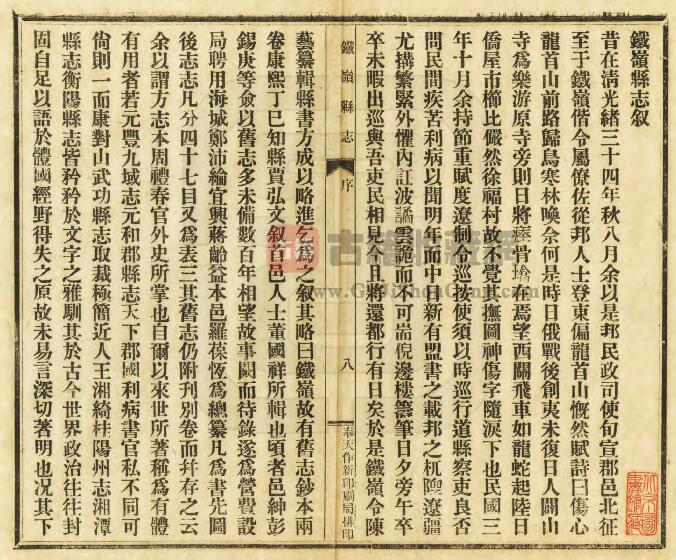 鐵嶺縣志叙
昔在淸光緒三十四年秋八月余以是邦民政司使旬宣郡邑北征
至于鐵嶺偕令屬僚佐從邦人士登東偏龍首山慨然賦詩曰傷心
龍首山前路歸鳥寒林喚奈何是時日俄戰後創夷未復日人闢山
寺爲樂游原寺旁則日將瘞骨塔在焉望西關飛車如龍蛇起陸日
僑屋市櫛比儼然徐福村故不覺其撫圖神傷字隨淚下也民國三
年十月余持節重賦度遼制令巡按使須以時巡行道縣察吏良否
問民間疾苦利病以聞明年而中日新有盟書之載邦之杌隉遼疆
尤搆繁緊外懼內訌波譎雲詭而不可耑倪邊樓籌筆日夕旁午卒
卒未暇出巡與吾吏民相見今且將還都行有日矣於是鐵嶺令陳
鐵嶺縣志
序
八
奉天作新印刷局排印
藝纂輯縣書方成以略進乞爲之叙其略曰鐵嶺故有舊志鈔本兩
卷康熙丁巳知縣賈弘文叙首邑人士董國祥所輯也頃者邑紳彭
錫庚等僉以舊志多未備數百年相望故事闕而待錄遂爲營費設
局聘用海城鄭沛綸宜興蔣齡益本邑羅葆恆爲總纂凡爲書先圖
後志志凡分四十七目又爲表三其舊志仍附刋別卷而幷存之云
余以謂方志本周禮春官外史所掌也自爾以來世所著稱爲有體
有用者若元豐九域志元和郡縣志天下郡國利病書官私不同可
尙則一而康對山武功縣志取裁極簡近人王湘綺桂陽州志湘潭
縣志衡陽縣志皆矜矜於文字之雅馴其於古今世界政治往往封
固自足以語於體國經野得失之原故未易言深切著明也况其下